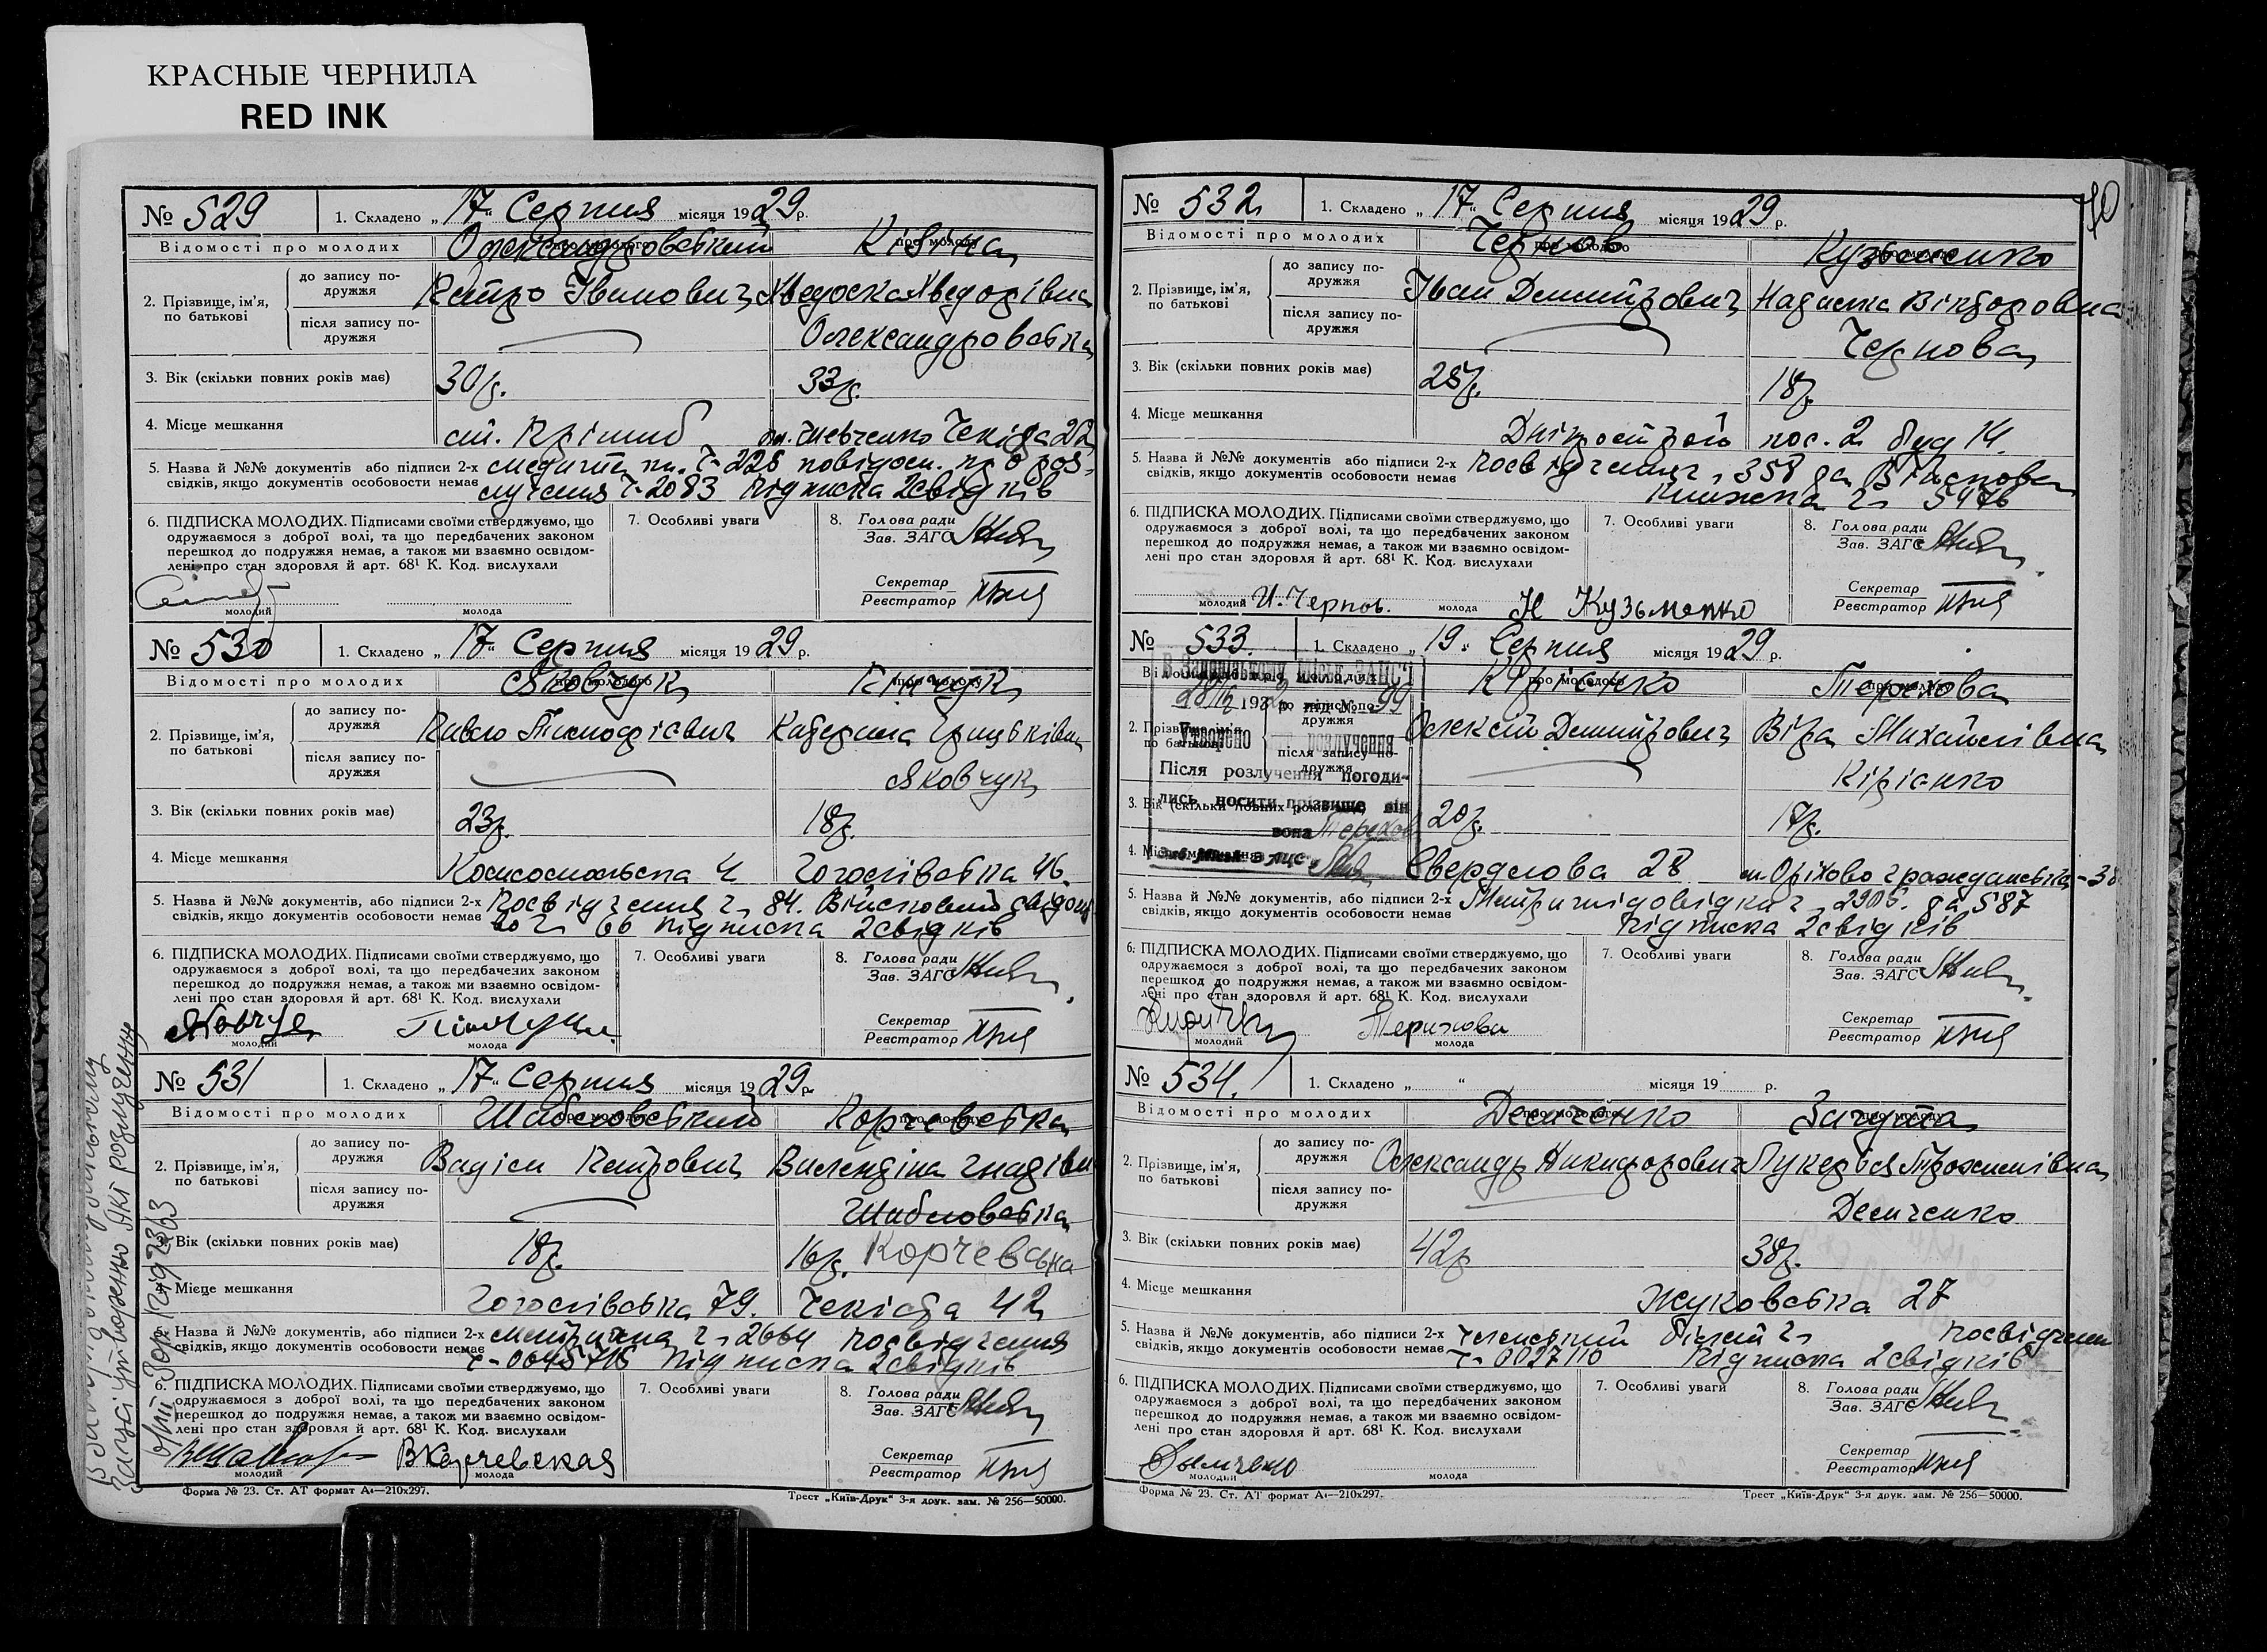 КРАСНЫЕ ЧЕРНИЛА
RED INK
№ 529 1. Складено „17“ Серпня місяця 1929 р.
Відомості про молодих про молодого про молоду
Олександровський
2. Прізвище, ім'я, по батькові
до запису подружжя Петро Іванович Хведоска Хведорівна
після запису подружжя Олександровська
3. Вік (скільки повних років має) 30 р. 33 р.
4. Місце мешкання ст. Шевченко Чекіста 22
5. Назва й №№ документів або підписи 2-х
свідків, якщо документів особовости немає
Ч-2083 підписка 2 свідків
6. ПІДПИСКА МОЛОДИХ. Підписами своїми стверджуємо, що
одружаємося з доброї волі, та що передбачених законом
перешкод до подружжя немає, а також ми взаємно освідом-
лені про стан здоровля й арт. 68¹ К. Код. вислухали
7. Особливі уваги
8. Голова ради
Зав. ЗАГС
Секретар
Реєстратор
молодий молода
№ 530 1. Складено „17“ Серпня місяця 1929 р.
Відомості про молодих про молодого про молоду
Яковчук
2. Прізвище, ім'я, по батькові
до запису подружжя Павло Тимофієвич Катерина Грицьківна
після запису подружжя Яковчук
3. Вік (скільки повних років має) 23 р. 18 р.
4. Місце мешкання Комсомольська 4 Гоголівська 46.
5. Назва й №№ документів, або підписи 2-х
свідків, якщо документів особовости немає
Посвідчення ч. 84. Військовий
66 підписка 2 свідків
6. ПІДПИСКА МОЛОДИХ. Підписами своїми стверджуємо, що
одружаємося з доброї волі, та що передбачених законом
перешкод до подружжя немає, а також ми взаємно освідом-
лені про стан здоровля й арт. 68¹ К. Код. вислухали
7. Особливі уваги
8. Голова ради
Зав. ЗАГС
Секретар
Реєстратор
молодий молода
№ 531 1. Складено „17“ Серпня місяця 1929 р.
Відомості про молодих про молодого про молоду
Шабловський Корчевська
2. Прізвище, ім'я, по батькові
до запису подружжя Вадім Петрович
після запису подружжя Шабловська
3. Вік (скільки повних років має) 18 р. 16 р. Корчевська
4. Місце мешкання Гоголівська 79. Чекіста 42
5. Назва й №№ документів, або підписи 2-х
свідків, якщо документів особовости немає
Метрична ч. 2664 посвідчення
підписка 2 свідків
6. ПІДПИСКА МОЛОДИХ. Підписами своїми стверджуємо, що
одружаємося з доброї волі, та що передбачених законом
перешкод до подружжя немає, а також ми взаємно освідом-
лені про стан здоровля й арт. 68¹ К. Код. вислухали
7. Особливі уваги
8. Голова ради
Зав. ЗАГС
Секретар
Реєстратор
ВКорчевская
молодий молода
Форма № 23. Ст. АТ формат А4—210х297. Трест „Київ-Друк“ 3-я друк. зам. № 256—50000.
70
№ 532 1. Складено „17“ Серпня місяця 1929 р.
Відомості про молодих про молодого про молоду
Чернов Кузьменко
2. Прізвище, ім'я, по батькові
до запису подружжя Іван Дмитрович Надежа Вікторовна
після запису подружжя Чернова
3. Вік (скільки повних років має) 25 р. 18 р.
4. Місце мешкання Дніпрострой пос. 2 буд 14.
5. Назва й №№ документів або підписи 2-х
свідків, якщо документів особовости немає
Посвідчення ч. 358 та
книжка ч. 5476
6. ПІДПИСКА МОЛОДИХ. Підписами своїми стверджуємо, що
одружаємося з доброї волі, та що передбачених законом
перешкод до подружжя немає, а також ми взаємно освідом-
лені про стан здоровля й арт. 68¹ К. Код. вислухали
7. Особливі уваги
8. Голова ради
Зав. ЗАГС
Секретар
Реєстратор
молодий И. Чернов. молода Н Кузьменко
№ 533. 1. Складено „19“ Серпня місяця 1929 р.
Відомості про молодих про молодого про молоду
Кірієнко Терехова
2. Прізвище, ім'я, по батькові
до запису подружжя Олексій Дмитрович Віра Михайлівна
після запису подружжя Кірієнко
В Запорізькому міськ. ЗАГСі
під № 99
Утворено розлучення
Після розлучення погоди-
лись носити прізвище він
вона Терехов
3. Вік (скільки повних років має) 20 р. 17 р.
4. Місце мешкання Свердлова 28 ст. Оріхово Гражданська-38
5. Назва й №№ документів, або підписи 2-х
свідків, якщо документів особовости немає
2905. та 587
підписка 2 свідків
6. ПІДПИСКА МОЛОДИХ. Підписами своїми стверджуємо, що
одружаємося з доброї волі, та що передбачених законом
перешкод до подружжя немає, а також ми взаємно освідом-
лені про стан здоровля й арт. 68¹ К. Код. вислухали
7. Особливі уваги
8. Голова ради
Зав. ЗАГС
Секретар
Реєстратор
молодий молода
№ 534. 1. Складено „ “ місяця 19 р.
Відомості про молодих про молодого про молоду
Демченко
2. Прізвище, ім'я, по батькові
до запису подружжя Олександр Никифорович Лукерія Трохимівна
після запису подружжя Демченко
3. Вік (скільки повних років має) 42 р 38 р.
4. Місце мешкання Жуковська 27
5. Назва й №№ документів, або підписи 2-х
свідків, якщо документів особовости немає
Членський білет ч.
підписка 2 свідків
6. ПІДПИСКА МОЛОДИХ. Підписами своїми стверджуємо, що
одружаємося з доброї волі, та що передбачених законом
перешкод до подружжя немає, а також ми взаємно освідом-
лені про стан здоровля й арт. 68¹ К. Код. вислухали
7. Особливі уваги
8. Голова ради
Зав. ЗАГС
Секретар
Реєстратор
молодий молода
Форма № 23. Ст. АТ формат А4—210х297. Трест „Київ-Друк“ 3-я друк. зам. № 256—50000.